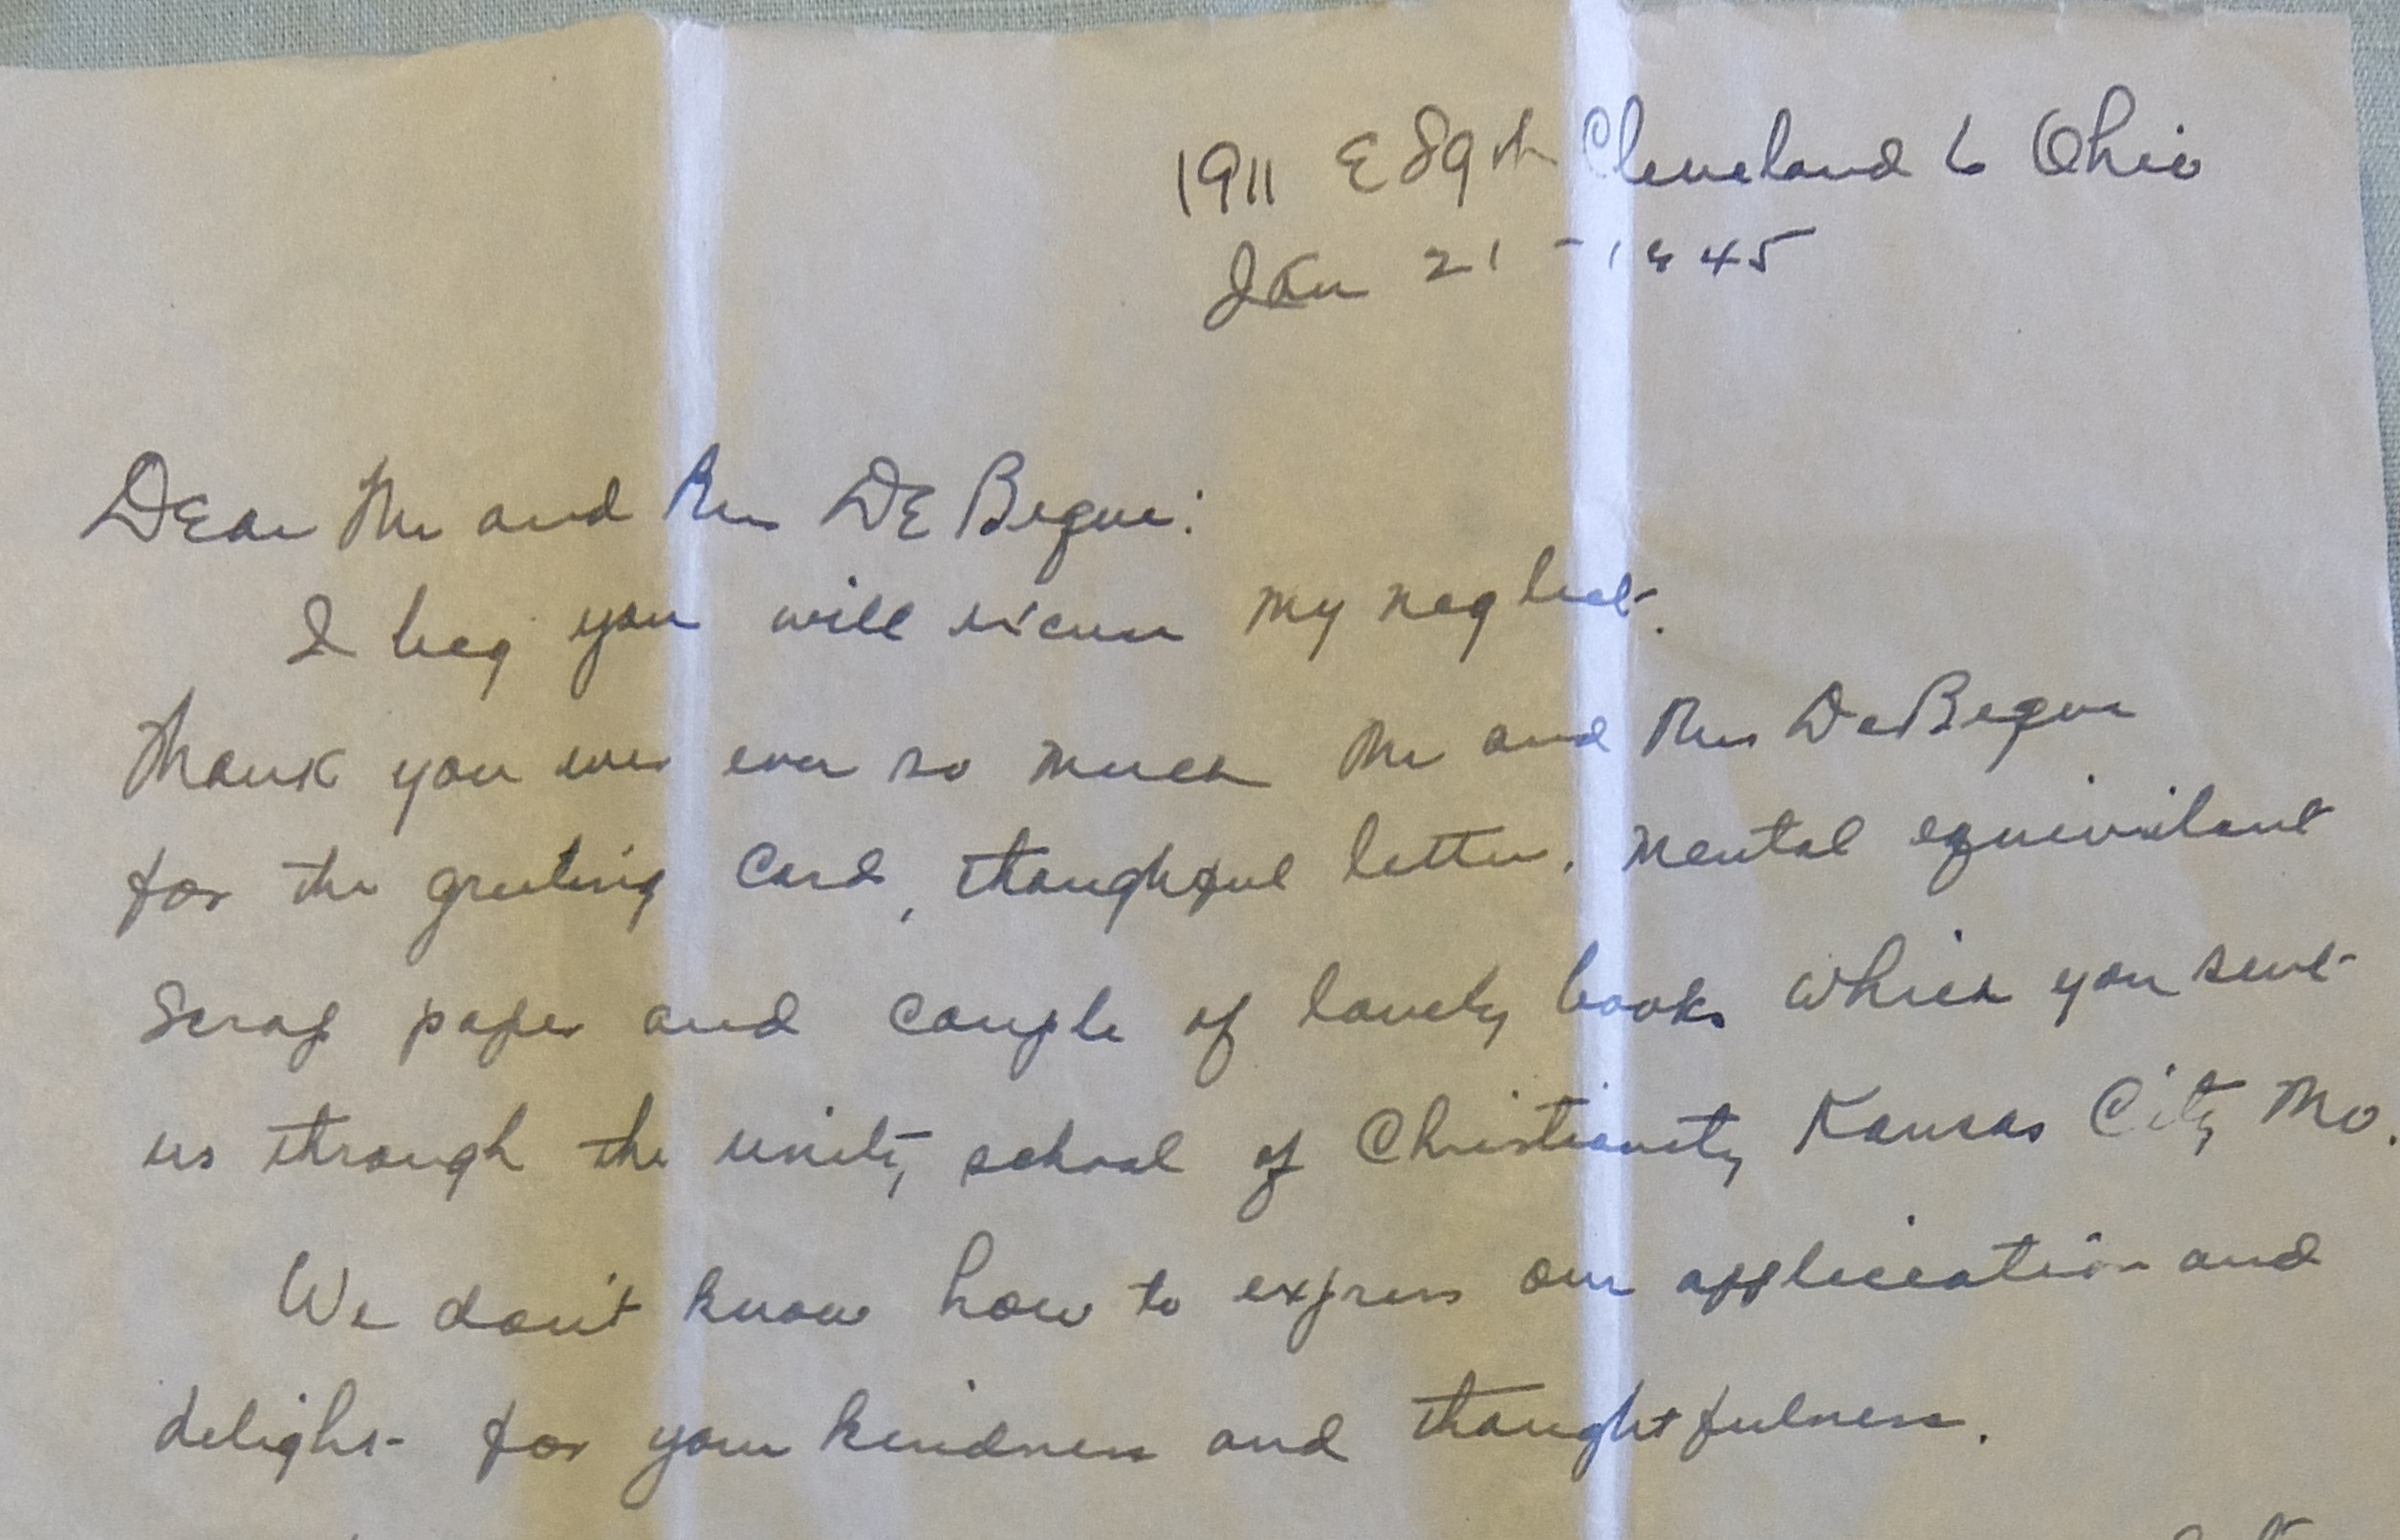 1911 E 89th Cleveland 6 Ohio
Jan 21 - 1945
Dear Mr and Mrs DE Begue:
I beg you will excuse my neglect.
Thank you ever so much Mr and Mrs DeBegue
for the greeting card, thoughtful letter. mental equivilant
Scrap paper and couple of lovely books which you sent
us through the unity school of Christianity Kansas City Mo.
We don't know how to express our appliciation and
delight for your kindness and thoughtfulness.